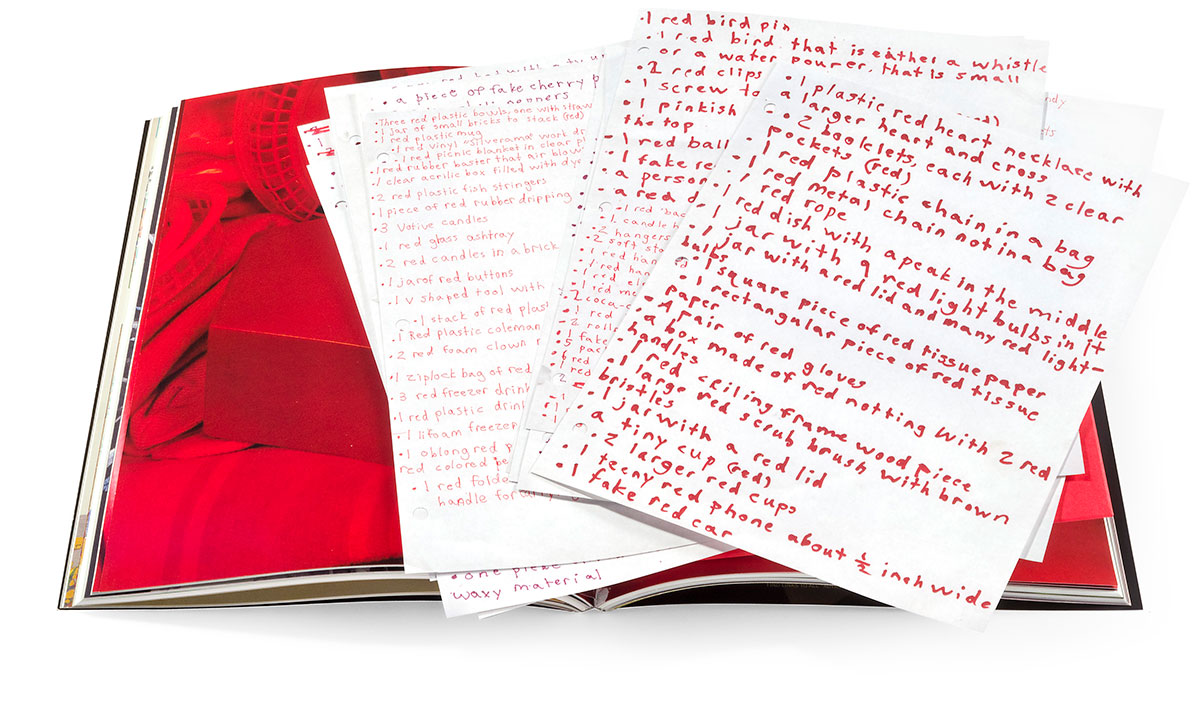 • a piece of fake cherry
• Three red plastic bowls one with straw
• 1 jar of small bricks to stack (red)
• 1 red plastic mug
• 1 red vinyl "Silverama" work
• 1 red picnic blanket in clear
• 1 red rubber baster that air blow
• 1 clear acrilic box filled with dye
• 2 red plastic fish stringers
• 1 piece of red rubber dripping
• 3 Votive candles
• 1 red glass ashtray
• 2 red candles in a brick
• 1 jar of red buttons
• 1 v shaped tool with
• 1 stack of red plas
• 1 Red plastic coleman
• 2 red foam clown
• 1 ziplock bag of red
• 3 red freezer drink
• 1 red plastic drin
• 1 lifoam freezer
• 1 oblong red
red colored
• 1 red folde
handle for
• one piece
waxy material
• 1 red bird pin
• 1 red bird that is eather a whistle
or a water pourer, that is small
• 2 red clips
• 1 screw to
• 1 pinkish
the top
• 1 red ball
• 1 fake re
• a person
• a red d
• 1 red
• 1 candle
• 2 hangers
• 2 soft sta
• 1 red han
• 1 red
• 2 coca-c
• 1 red
• 2 rolls
• 1 fake
• 1 plastic red heart necklace with
a larger heart and cross
• 2 booklelets, each with 2 clear
pockets (red)
• 1 red plastic chain in a bag
• 1 red metal chain not in a bag
• 1 red rope
• 1 red dish with a peak in the middle
• 1 jar with 9 red light bulbs in it
• 1 jar with a red lid and many red light-
bulbs
• 1 square piece of red tissue paper
• 1 rectangular piece of red tissue
paper
• A pair of red gloves
• a box made of red notting with 2 red
handles
• 1 red ceiling frame wood piece
• 1 large red scrub brush with brown
bristles
• a jar with a red lid
• 1 tiny cup (red)
• 2 larger red cups
• 1 teeny red phone about ½ inch wide
• 1 fake red car